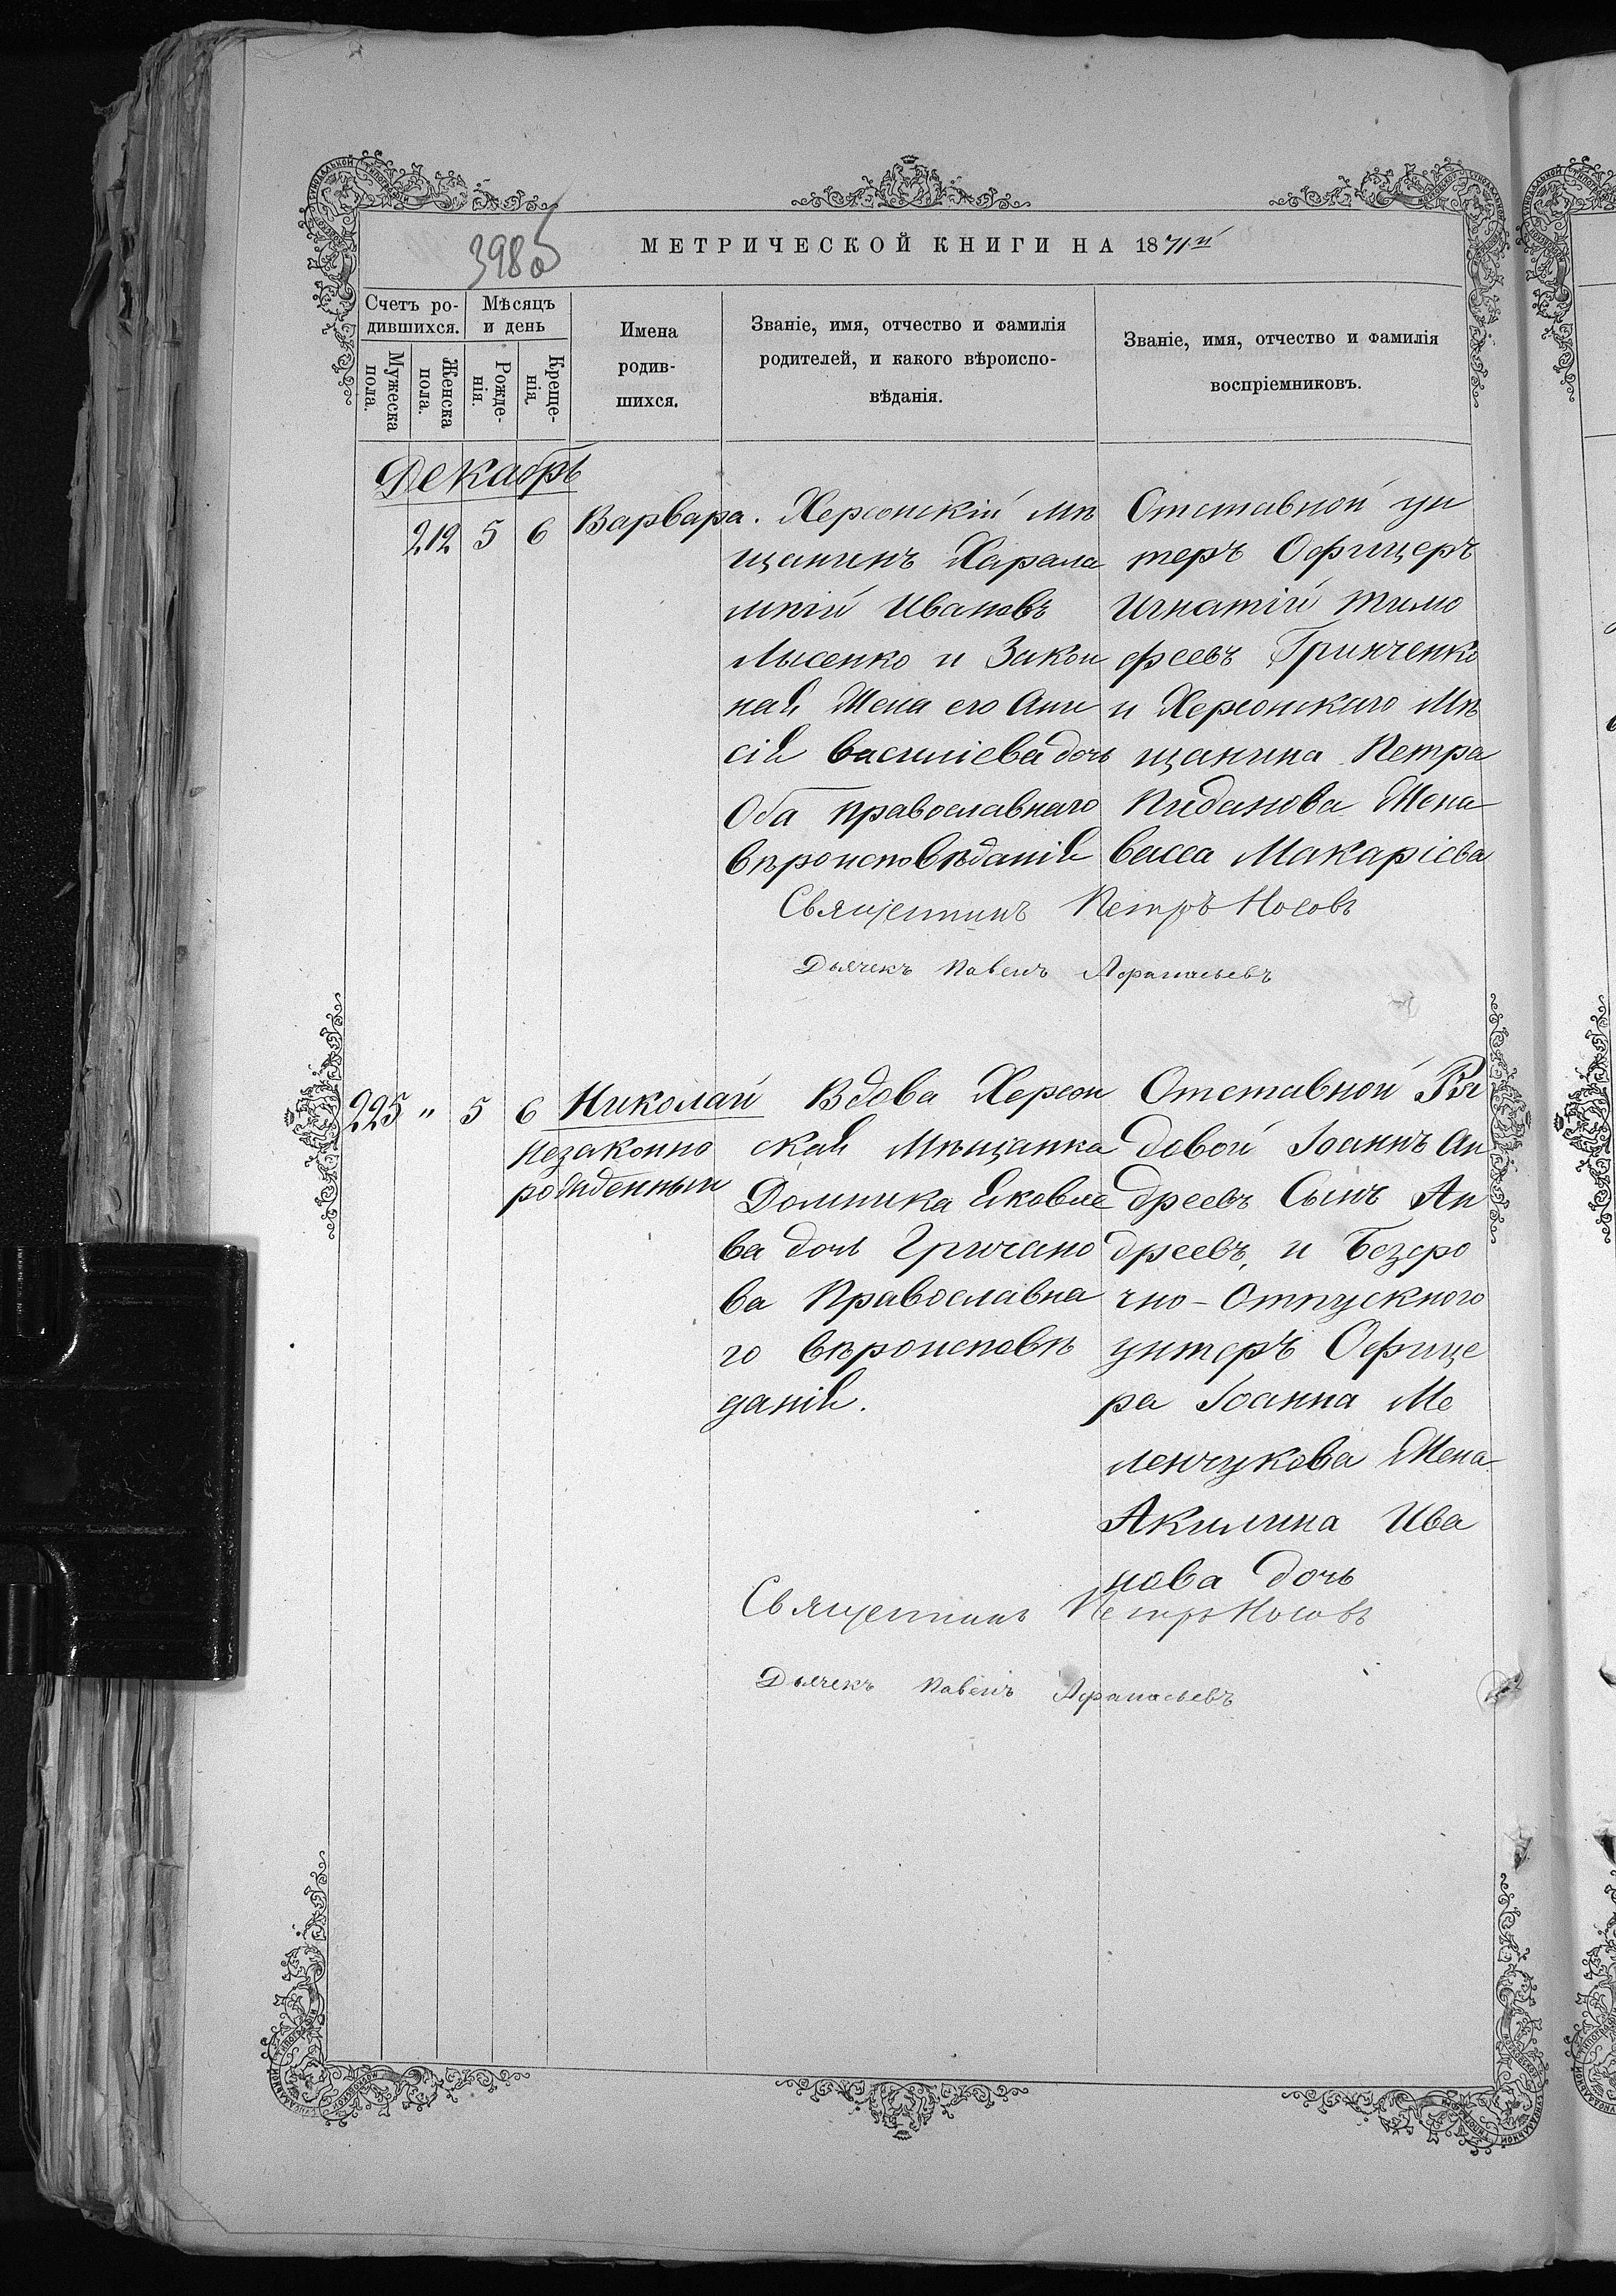 398об
МЕТРИЧЕСКОЙ КНИГИ НА 1871й
Счетъ ро-
дившихся.
Мужеска
пола.
Женска
пола.
Мѣсяцъ
и день
Рожде-
нія.
Креще-
нія.
Имена
родив-
шихся.
Званіе, имя, отчество и фамилія
родителей, и какого вѣроиспо-
вѣданія.
Званіе, имя, отчество и фамилія
воспріемниковъ.
Декабрь
212 5 6 Варвара.
Херсонскій мѣ
щанинъ Харала
мпій Ивановъ
Лысенко и Закон
ная Жена его Ани
сія василіева дочь
Оба православнаго
вѣроисповѣданія
Отставной ун
теръ Офицеръ
Игнатій тимо
феевъ Гринченко
и Херсонскаго Мѣ
щанина Петра
Пиданова Жена
васса Макаріева
Священникъ Петръ Носовъ
Дьячекъ Павелъ Афанасьевъ
225 " 5 6 Николай
Незаконно
рожденный
Вдова Херсон
ская Мѣщанка
Домника Яковле
ва дочь Гричано
ва Православна
го вѣроисповѣ
данія.
Отставной Ря
довой Іоаннъ Ан
дреевъ Сынъ Ан
дреевъ, и Безсро
чно-Отпускного
унтеръ Офице
ра Іоанна Ме
ленчукова Жена
Акилина Ива
нова дочь
Священникъ Петръ Носовъ
Дьячекъ Павелъ Афанасьевъ